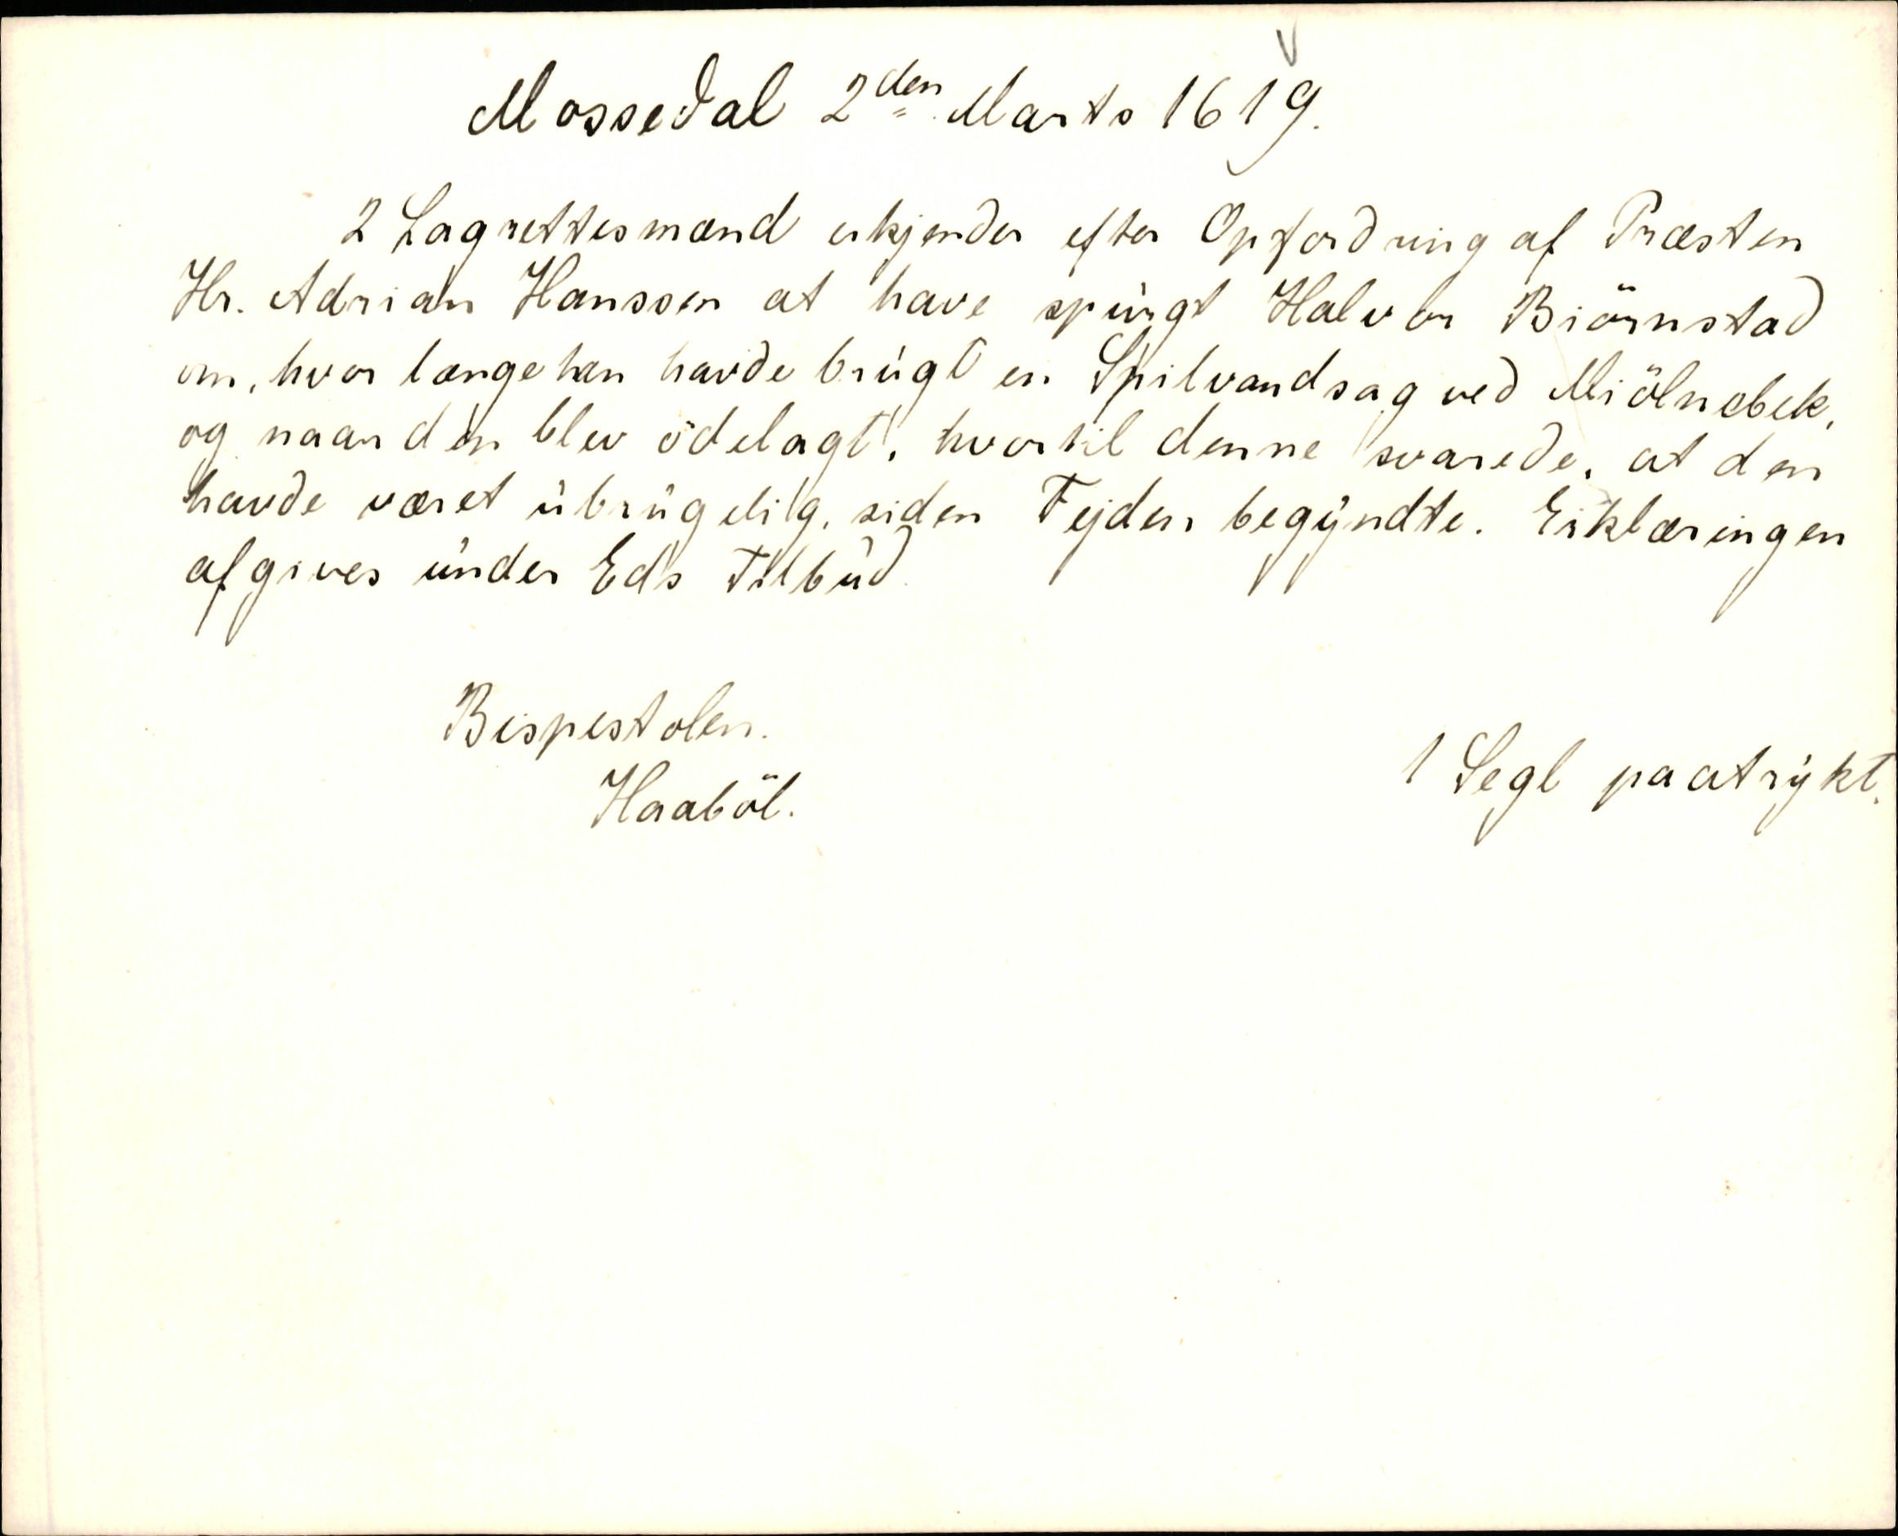 Mossedal 2den Marts 1619.
2 Lagrettesmænd erkjender efter Opfordring af Præsten
Hr. Adrian Hanssen at have spurgt Halvor Biörnstad
om, hvor længe han havde brugt en Spilvandsag ved Miölnebek,
og naar den blev ödelagt, hvortil denne svarede, at den
havde været ubrugelig, siden Fejden begyndte. Erklæringen
afgives under Eds Tilbud.
Bispestolen.
1 Segl paatrykt.
Haaböl.